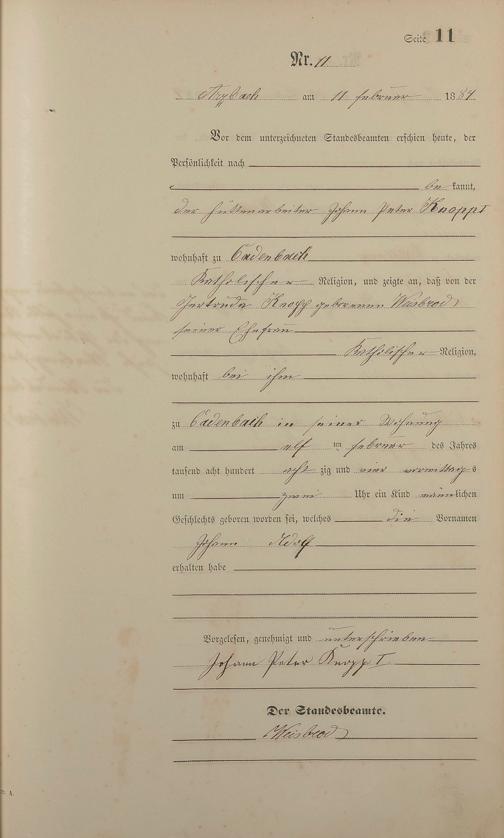 Seite 11
Nr. 11
Arzbach am 11 Februar 1884
Vor dem unterzeichneten Standesbeamten erschien heute, der
Persönlichkeit nach
be kannt,
der Hüttenarbeiter Johann Peter Knopp I
wohnhaft zu Cadenbach
Katholischer Religion, und zeigte an, daß von der
Gertrude Knopp geborenen Weisbrod,
seiner Ehefrau
Katholischer Religion,
wohnhaft bei ihm
zu Cadenbach in seiner Wohnung
am elf ten Februar des Jahres
tausend acht hundert acht zig und vier vormittag s
um zwei Uhr ein Kind männlichen
Geschlechts geboren worden sei, welches die Vornamen
Johann Adolf
erhalten habe
Vorgelesen, genehmigt und unterschrieben
Johann Peter Knopp I
Der Standesbeamte.
Weisbrod